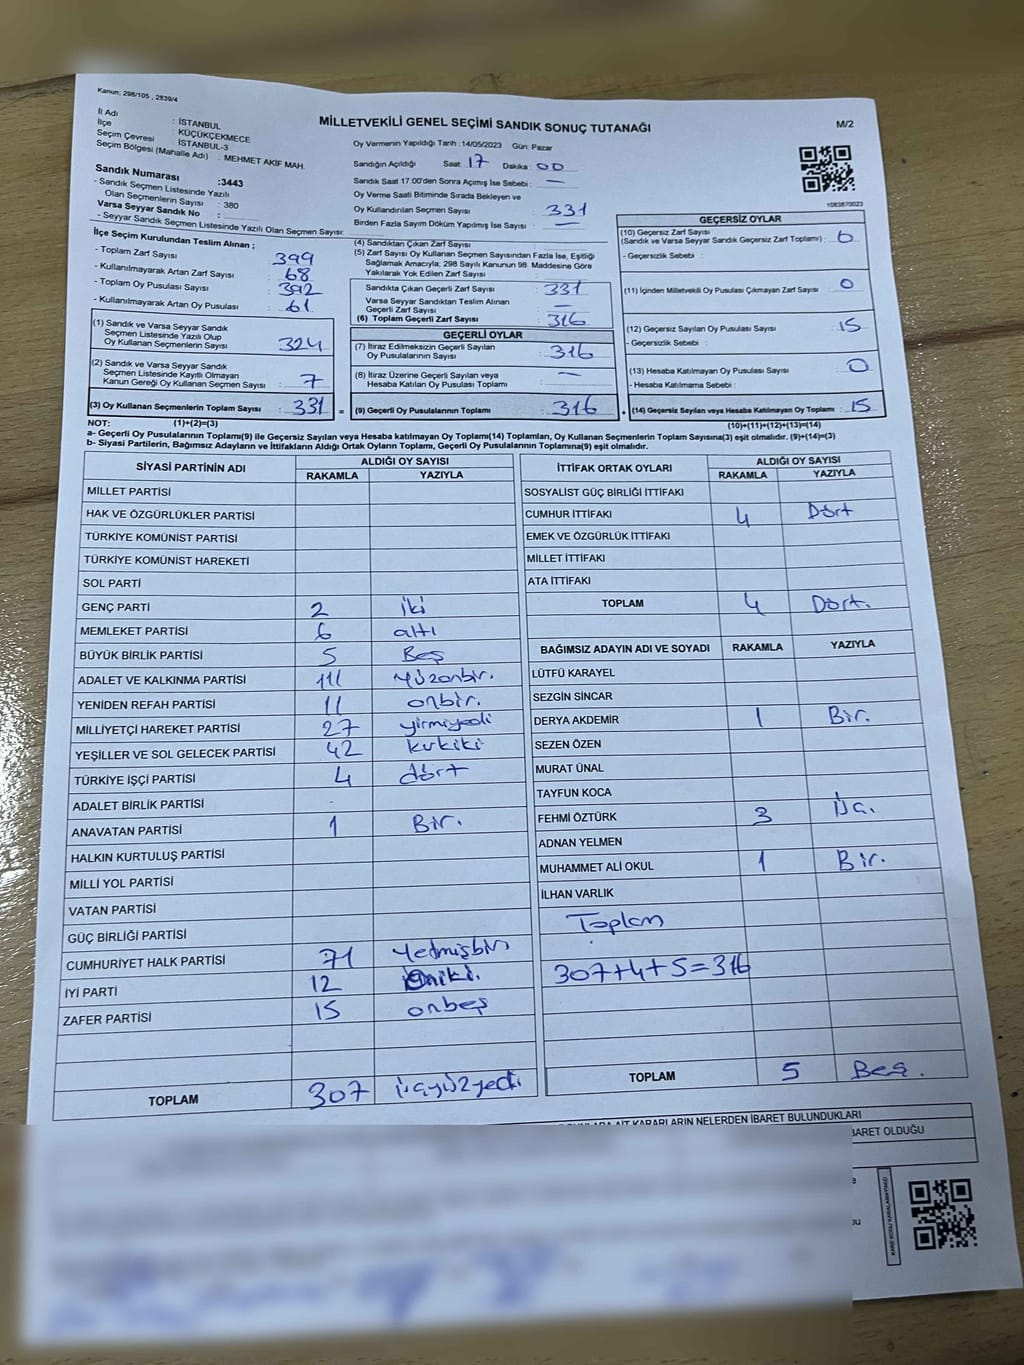 Kanun; 298/105 , 2839/4
MİLLETVEKİLİ GENEL SEÇİMİ SANDIK SONUÇ TUTANAĞI
M/2
İl Adı : İSTANBUL
İlçe : KÜÇÜKÇEKMECE
Seçim Çevresi : İSTANBUL-3
Seçim Bölgesi (Mahalle Adı) : MEHMET AKİF MAH.
Sandık Numarası :3443
- Sandık Seçmen Listesinde Yazılı
Olan Seçmenlerin Sayısı : 380
Varsa Seyyar Sandık No :
- Seyyar Sandık Seçmen Listesinde Yazılı Olan Seçmen Sayısı:
İlçe Seçim Kurulundan Teslim Alınan ;
- Toplam Zarf Sayısı 399
- Kullanılmayarak Artan Zarf Sayısı 68
- Toplam Oy Pusulası Sayısı 392
- Kullanılmayarak Artan Oy Pusulası 61
(1) Sandık ve Varsa Seyyar Sandık
Seçmen Listesinde Yazılı Olup
Oy Kullanan Seçmenlerin Sayısı 324
(2) Sandık ve Varsa Seyyar Sandık
Seçmen Listesinde Kayıtlı Olmayan
Kanun Gereği Oy Kullanan Seçmen Sayısı : 7
(3) Oy Kullanan Seçmenlerin Toplam Sayısı : 331 =
Oy Vermenin Yapıldığı Tarih :14/05/2023 Gün: Pazar
Sandığın Açıldığı Saat: 17 Dakika : 00
Sandık Saat 17.00'den Sonra Açımış İse Sebebi : —
Oy Verme Saati Bitiminde Sırada Bekleyen ve
Oy Kullandırılan Seçmen Sayısı : 331
Birden Fazla Sayım Döküm Yapılmış İse Sayısı : —
(4) Sandıktan Çıkan Zarf Sayısı :
(5) Zarf Sayısı Oy Kullanan Seçmen Sayısından Fazla İse, Eşitliği
Sağlamak Amacıyla, 298 Sayılı Kanunun 98. Maddesine Göre
Yakılarak Yok Edilen Zarf Sayısı :
Sandıkta Çıkan Geçerli Zarf Sayısı : 331
Varsa Seyyar Sandıktan Teslim Alınan
Geçerli Zarf Sayısı : —
(6) Toplam Geçerli Zarf Sayısı : 316
GEÇERLİ OYLAR
(7) İtiraz Edilmeksizin Geçerli Sayılan
Oy Pusulalarının Sayısı : 316
(8) İtiraz Üzerine Geçerli Sayılan veya
Hesaba Katılan Oy Pusulası Toplamı : —
(9) Geçerli Oy Pusulalarının Toplamı : 316
1083870023
GEÇERSİZ OYLAR
(10) Geçersiz Zarf Sayısı
(Sandık ve Varsa Seyyar Sandık Geçersiz Zarf Toplamı) : 0
- Geçersizlik Sebebi :
(11) İçinden Milletvekili Oy Pusulası Çıkmayan Zarf Sayısı : 0
(12) Geçersiz Sayılan Oy Pusulası Sayısı : 15
- Geçersizlik Sebebi :
(13) Hesaba Katılmayan Oy Pusulası Sayısı : 0
- Hesaba Katılmama Sebebi :
(14) Geçersiz Sayılan veya Hesaba Katılmayan Oy Toplamı : 15
NOT: (1)+(2)=(3) (10)+(11)+(12)+(13)=(14)
a- Geçerli Oy Pusulalarının Toplamı(9) ile Geçersiz Sayılan veya Hesaba katılmayan Oy Toplamı(14) Toplamları, Oy Kullanan Seçmenlerin Toplam Sayısına(3) eşit olmalıdır. (9)+(14)=(3)
b- Siyasi Partilerin, Bağımsız Adayların ve İttifakların Aldığı Ortak Oyların Toplamı, Geçerli Oy Pusulalarının Toplamına(9) eşit olmalıdır.
SİYASİ PARTİNİN ADI ALDIĞI OY SAYISI
RAKAMLA YAZIYLA
MİLLET PARTİSİ
HAK VE ÖZGÜRLÜKLER PARTİSİ
TÜRKİYE KOMÜNİST PARTİSİ
TÜRKİYE KOMÜNİST HAREKETİ
SOL PARTİ
GENÇ PARTİ 2 iki
MEMLEKET PARTİSİ 6 altı
BÜYÜK BİRLİK PARTİSİ 5 Beş
ADALET VE KALKINMA PARTİSİ 111 yüzonbir.
YENİDEN REFAH PARTİSİ 11 onbir.
MİLLİYETÇİ HAREKET PARTİSİ 27 yirmiyedi
YEŞİLLER VE SOL GELECEK PARTİSİ 42 kırkiki
TÜRKİYE İŞÇİ PARTİSİ 4 dört
ADALET BİRLİK PARTİSİ
ANAVATAN PARTİSİ 1 Bir.
HALKIN KURTULUŞ PARTİSİ
MİLLİ YOL PARTİSİ
VATAN PARTİSİ
GÜÇ BİRLİĞİ PARTİSİ
CUMHURİYET HALK PARTİSİ 71 Yetmişbir
İYİ PARTİ 12 Oniki.
ZAFER PARTİSİ 15 onbeş
TOPLAM 307 üçyüzyedi
İTTİFAK ORTAK OYLARI ALDIĞI OY SAYISI
RAKAMLA YAZIYLA
SOSYALİST GÜÇ BİRLİĞİ İTTİFAKI
CUMHUR İTTİFAKI 4 Dört
EMEK VE ÖZGÜRLÜK İTTİFAKI
MİLLET İTTİFAKI
ATA İTTİFAKI
TOPLAM 4 Dört.
BAĞIMSIZ ADAYIN ADI VE SOYADI RAKAMLA YAZIYLA
LÜTFÜ KARAYEL
SEZGİN SİNCAR
DERYA AKDEMİR 1 Bir.
SEZEN ÖZEN
MURAT ÜNAL
TAYFUN KOCA
FEHMİ ÖZTÜRK 3 Üç.
ADNAN YELMEN
MUHAMMET ALİ OKUL 1 Bir.
İLHAN VARLIK
Toplam
307+4+5=316
TOPLAM 5 Beş.
AİT KARARLARIN NELERDEN İBARET BULUNDUKLARI
BARET OLDUĞU